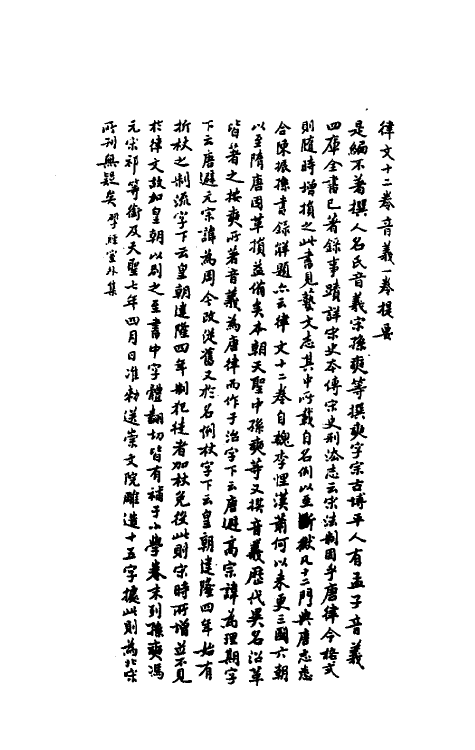 律文十二卷音義一卷提要
是編不著撰人名氏音義宋孫奭等撰奭字宗古博平人有孟子音義
四庫全書已著錄事蹟詳宋史本傳宋史刑法志云宋法制因乎唐律令格式
則隨時增損之此書見藝文志其中所載自名例以至斷獄凡十二門與唐志悉
合陳振孫書錄解題云律文十二卷自魏李悝漢蕭何以來更三國六朝
以至隋唐因革損益備矣本朝天聖中孫奭等又撰音義歷代異名沿革
皆著之按奭所著音義為唐律而作于治字下云唐避高宗諱為理期字
下云唐避元宗諱為周今改從舊又於名例杖字下云皇朝建隆四年始有
折杖之制流字下云皇朝建隆四年制犯徒者加杖免役此則宋時所增並不見
於律文故加皇朝以別之至書中字體翻切皆有補于小學卷末列孫奭馮
元宋祁等銜及天聖七年四月日准勅送崇文院雕造十五字據此則為北宋
所刊無疑矣 揅經室外集